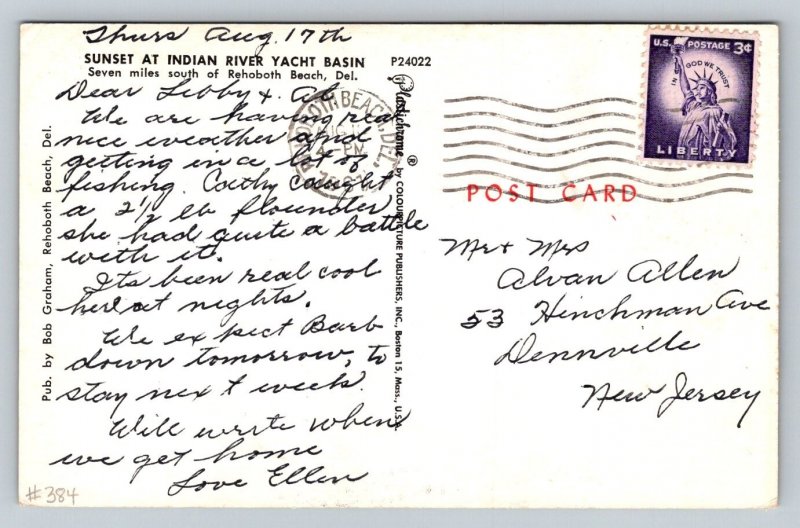 Thurs Aug. 17th
SUNSET AT INDIAN RIVER YACHT BASIN P24022
Seven miles south of Rehoboth Beach, Del.
Dear Libby & Al
We are having real
nice weather and
getting in a lot of
fishing. Cathy caught
a 2 1/2 lb flounder
she had quite a battle
with it.
Its been real cool
here at nights.
We expect Barb
down tomorrow, to
stay next week.
Will write when
we get home
Love Ellen
#384
Pub. by Bob Graham, Rehoboth Beach, Del.
Plastichrome ® by COLOURPICTURE PUBLISHERS, INC., Boston 15, Mass., U.S.A.
REHOBOTH BEACH, DEL.
AUG
PM
U.S. POSTAGE 3¢
IN GOD WE TRUST
LIBERTY
POST CARD
Mr & Mrs
Alvan Allen
53 Hinchman Ave
Dennville
New Jersey